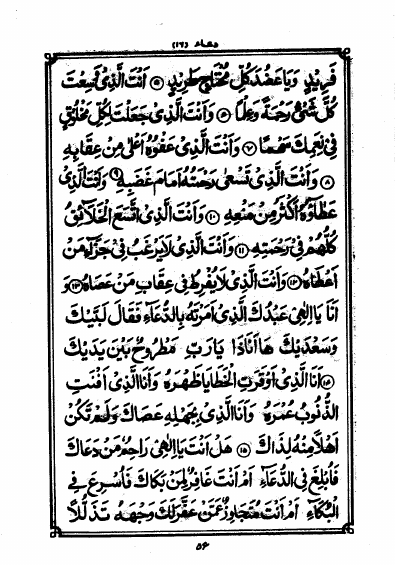 دعاء (۱۶)
فَرِيْدٍ وَيَا عَضُدَ كُلِّ مُحْتَاجٍ طَرِيْدٍ ۝ اَنْتَ الَّذِىْ وَسِعْتَ
كُلَّ شَىْءٍ رَحْمَةً وَعِلْمًا ۝ وَاَنْتَ الَّذِىْ جَعَلْتَ لِكُلِّ مَخْلُوْقٍ
فِىْ نِعَمِكَ سَهْمًا ۝ وَاَنْتَ الَّذِىْ عَفْوُهٗ اَعْلٰى مِنْ عِقَابِهٖ
۝ وَاَنْتَ الَّذِىْ تَسْعٰى رَحْمَتُهٗ اَمَامَ غَضَبِهٖ ۝ وَاَنْتَ الَّذِىْ
عَطَاؤُهٗ اَكْثَرُ مِنْ مَنْعِهٖ ۝ وَاَنْتَ الَّذِىْ اتَّسَعَ الْخَلَآئِقُ
كُلُّهُمْ فِىْ رَحْمَتِهٖ ۝ وَاَنْتَ الَّذِىْ لَا يَرْغَبُ فِىْ جَزَآءِ مَنْ
اَعْطَاهُ ۝ وَاَنْتَ الَّذِىْ لَا يُفْرِطُ فِىْ عِقَابِ مَنْ عَصَاهُ ۝ وَ
اَنَا يَا اِلٰهِىْ عَبْدُكَ الَّذِىْ اَمَرْتَهٗ بِالدُّعَآءِ فَقَالَ لَبَّيْكَ
وَسَعْدَيْكَ هَا اَنَا ذَا يَا رَبِّ مَطْرُوْحٌ بَيْنَ يَدَيْكَ
۝ اَنَا الَّذِىْ اَوْقَرَتِ الْخَطَايَا ظَهْرَهٗ وَاَنَا الَّذِىْ اَفْنَتِ
الذُّنُوْبُ عُمُرَهٗ وَاَنَا الَّذِىْ بِجَهْلِهٖ عَصَاكَ وَلَمْ تَكُنْ
اَهْلًا مِنْهُ لِذَاكَ ۝ هَلْ اَنْتَ يَا اِلٰهِىْ رَاحِمٌ مَنْ دَعَاكَ
فَاُبْلِغَ فِى الدُّعَآءِ اَمْ اَنْتَ غَافِرٌ لِمَنْ بَكَاكَ فَاُسْرِعَ فِى
الْبُكَآءِ اَمْ اَنْتَ مُتَجَاوِزٌ عَمَّنْ عَفَّرَ لَكَ وَجْهَهٗ تَذَلُّلًا
۵۴